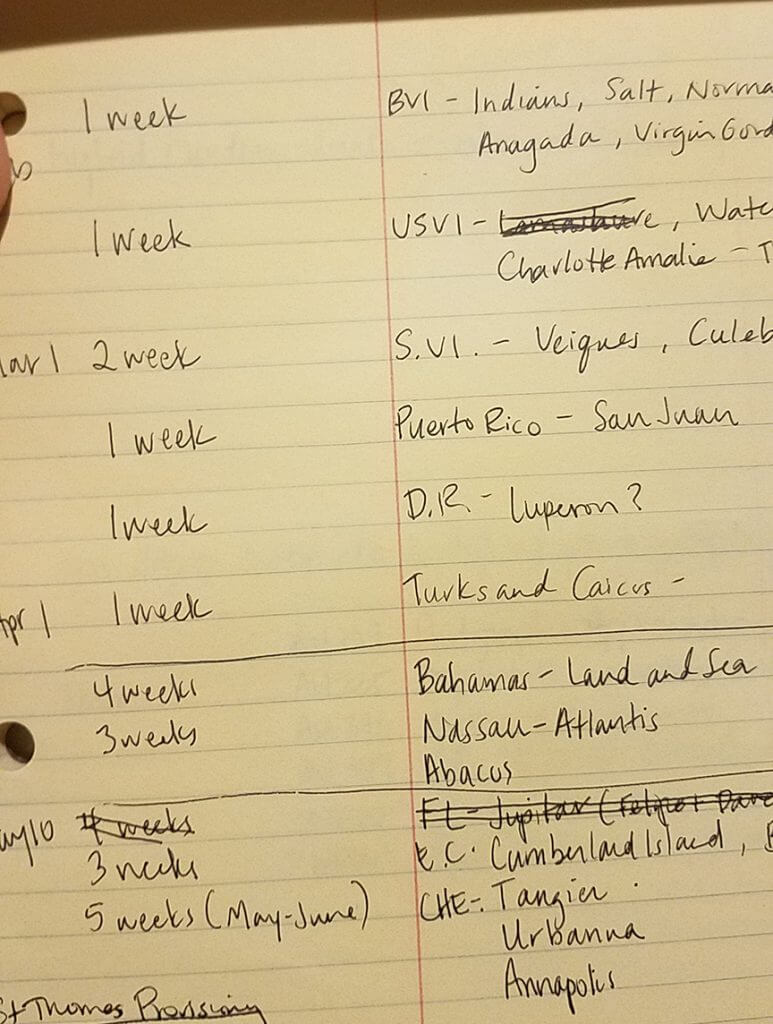 1 week BVI - Indians, Salt, Norma
Anagada, Virgin Gord
1 week USVI - , Watc
Charlotte Amalie - T
Mar 1 2 week S.VI. - Veiques, Culeb
1 week Puerto Rico - San Juan
1 week D.R. - Luperon?
Apr 1 1 week Turks and Caicus -
4 weeks Bahamas - Land and Sea
3 weeks Nassau - Atlantis
Abacus
ay 10 4 weeks FL - Jupitar (
3 weeks E.C. Cumberland Island,
5 weeks (May-June) CHE-. Tangier
Urbanna
Annapolis
St Thomas Provisioning